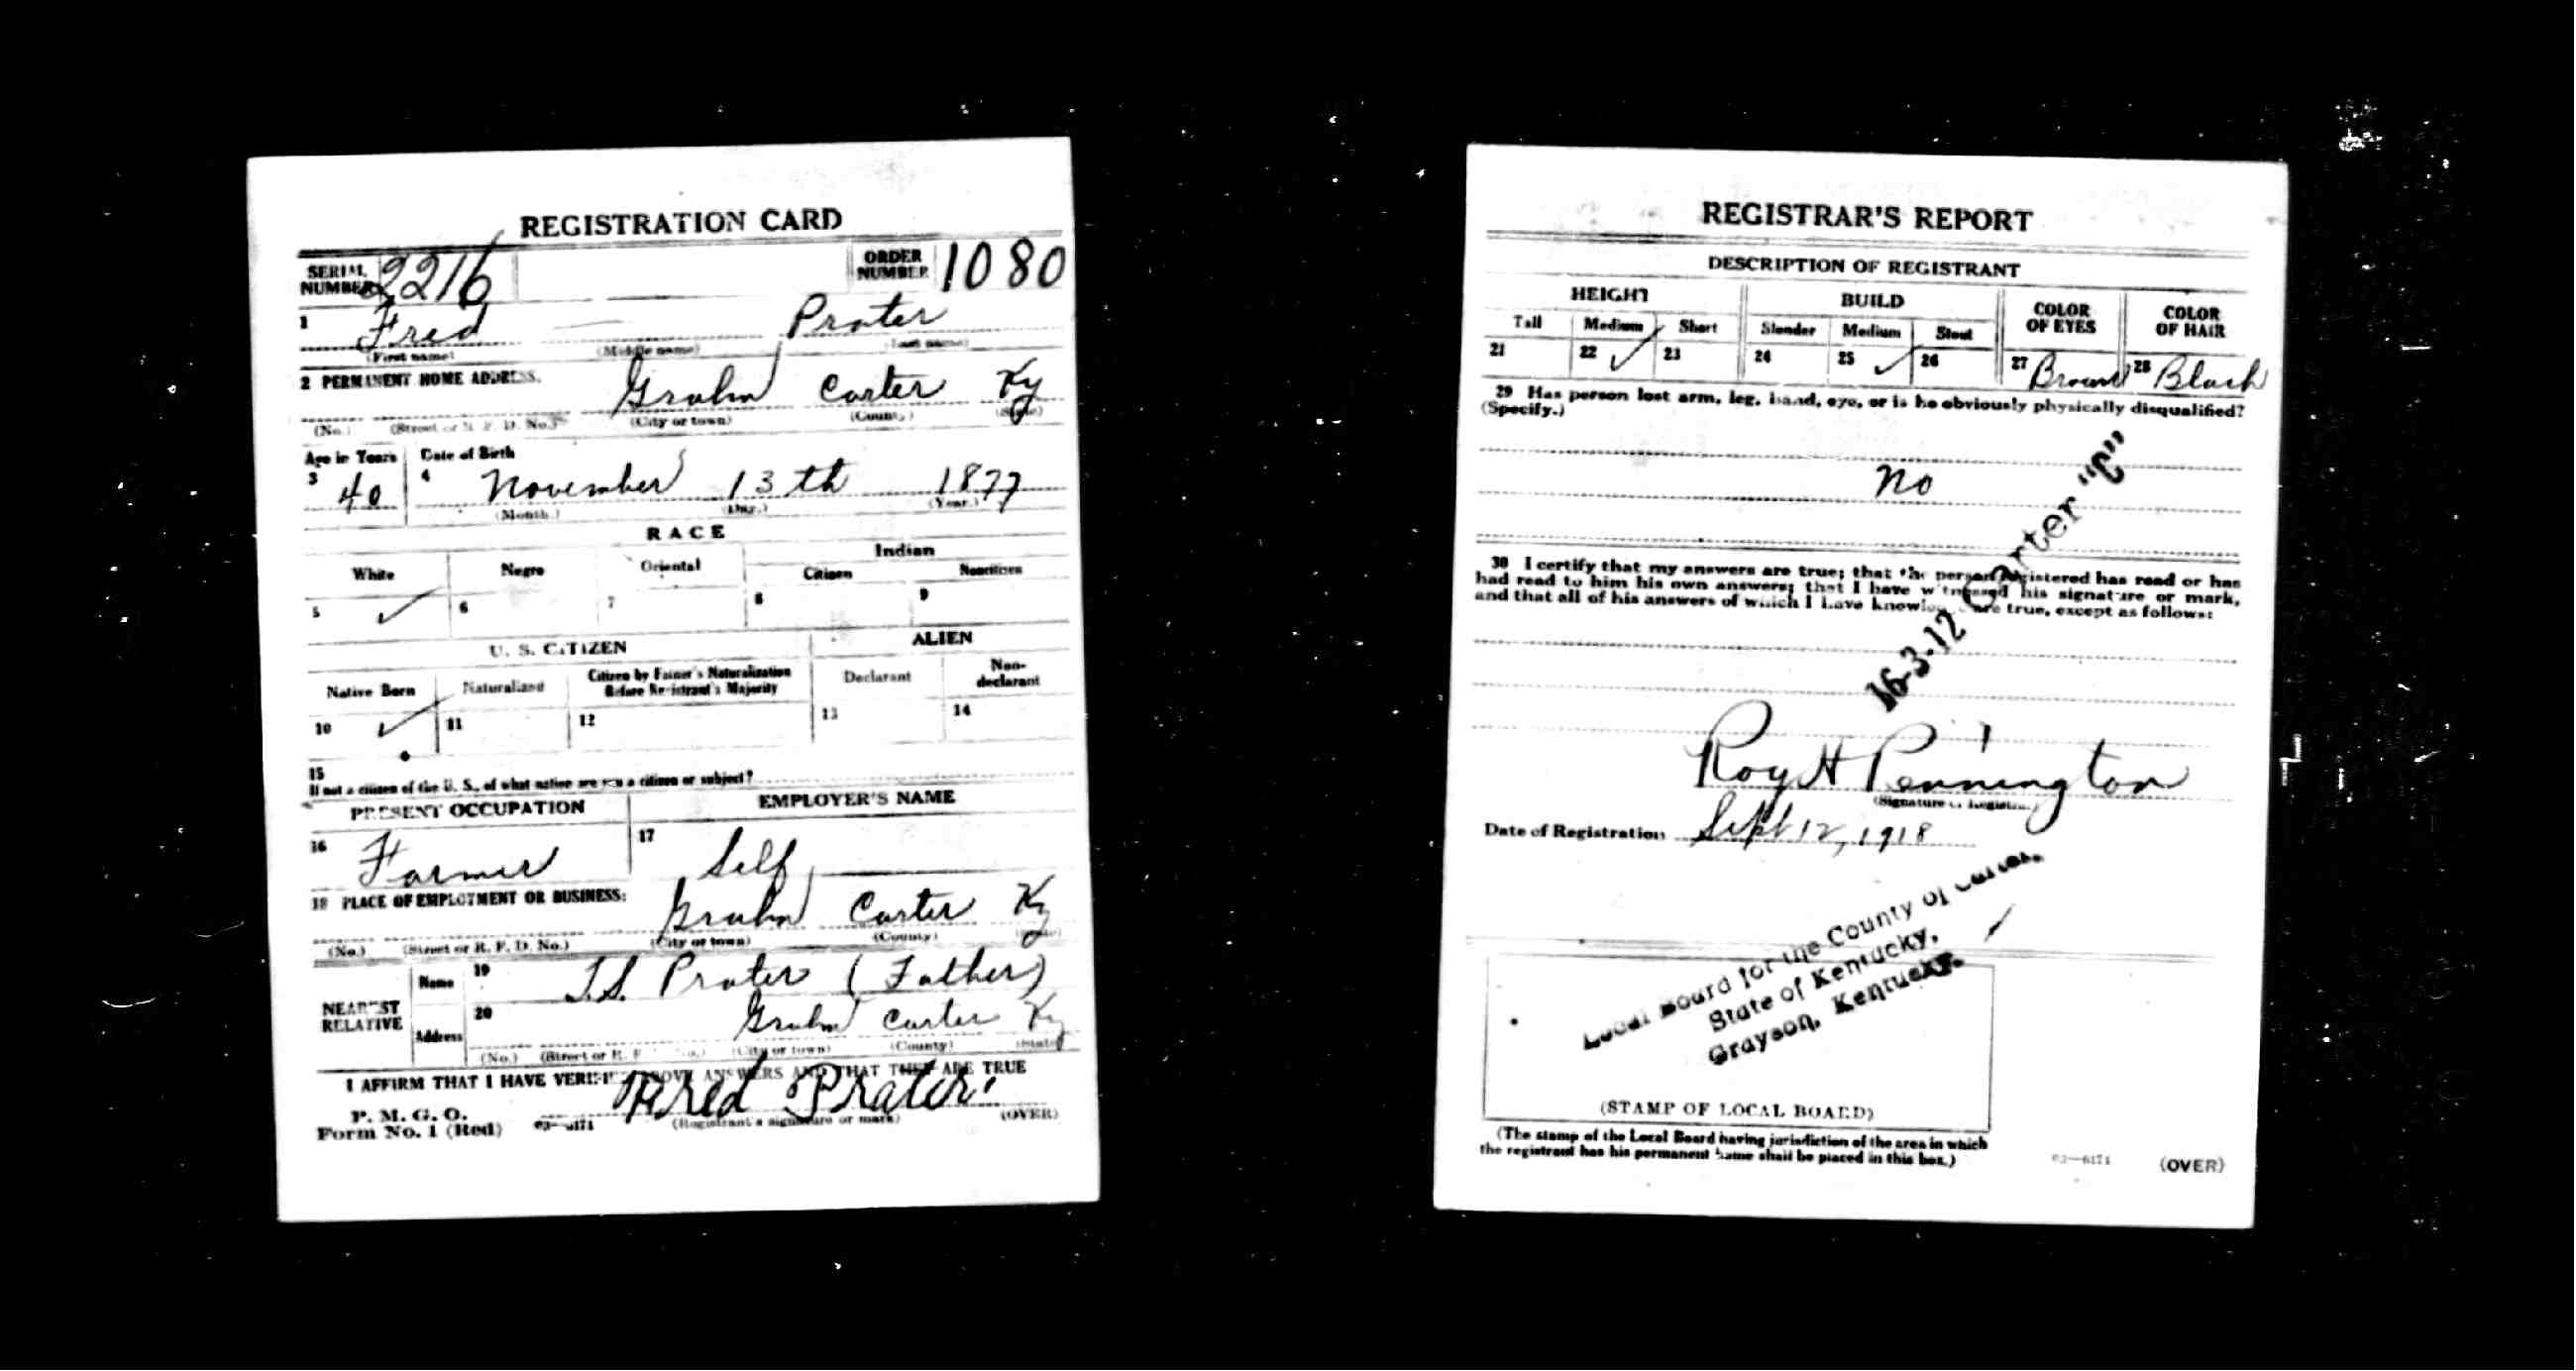 REGISTRATION CARD
SERIAL NUMBER 2216 ORDER NUMBER 1080
1 Fred Prater
(First name) (Middle name) (Last name)
2 PERMANENT HOME ADDRESS.
Grahn Carter Ky
(No.) (Street or R. F. D. No.) (City or town) (County) (State)
Age in Years Date of Birth
3 40 4 November 13th 1877
(Month.) (Day.) (Year.)
RACE
White Negro Oriental Indian
Citizen Noncitizen
5 ✓ 6 7 8 9
U. S. CITIZEN ALIEN
Native Born Naturalized Citizen by Father's Naturalization Before Registrant's Majority Declarant Non-declarant
10 ✓ 11 12 13 14
15
If not a citizen of the U. S., of what nation are you a citizen or subject?
PRESENT OCCUPATION EMPLOYER'S NAME
16 Farmer 17 Self
18 PLACE OF EMPLOYMENT OR BUSINESS:
Grahn Carter Ky
(No.) (Street or R. F. D. No.) (City or town) (County) (State)
NEAREST RELATIVE
Name 19 Prater (Father)
Address 20 Grahn Carter Ky
(No.) (Street or R. F. D. No.) (City or town) (County) (State)
I AFFIRM THAT I HAVE VERIFIED ABOVE ANSWERS AND THAT THEY ARE TRUE
P. M. G. O.
Form No. 1 (Red) 03—6171 Fred Prater
(Registrant's signature or mark) (OVER)
REGISTRAR'S REPORT
DESCRIPTION OF REGISTRANT
HEIGHT BUILD COLOR OF EYES COLOR OF HAIR
Tall Medium Short Slender Medium Stout
21 22 ✓ 23 24 25 ✓ 26 27 Brown 28 Black
29 Has person lost arm, leg, hand, eye, or is he obviously physically disqualified?
(Specify.)
No
30 I certify that my answers are true; that the person registered has read or has
had read to him his own answers; that I have witnessed his signature or mark,
and that all of his answers of which I have knowledge are true, except as follows:
16-3-12 Carter "C"
Roy H Pennington
(Signature of Registrar)
Date of Registration Sept 12, 1918
Local Board for the County of Carter,
State of Kentucky,
Grayson, Kentucky.
(STAMP OF LOCAL BOARD)
(The stamp of the Local Board having jurisdiction of the area in which
the registrant has his permanent home shall be placed in this box.)
03—6171 (OVER)